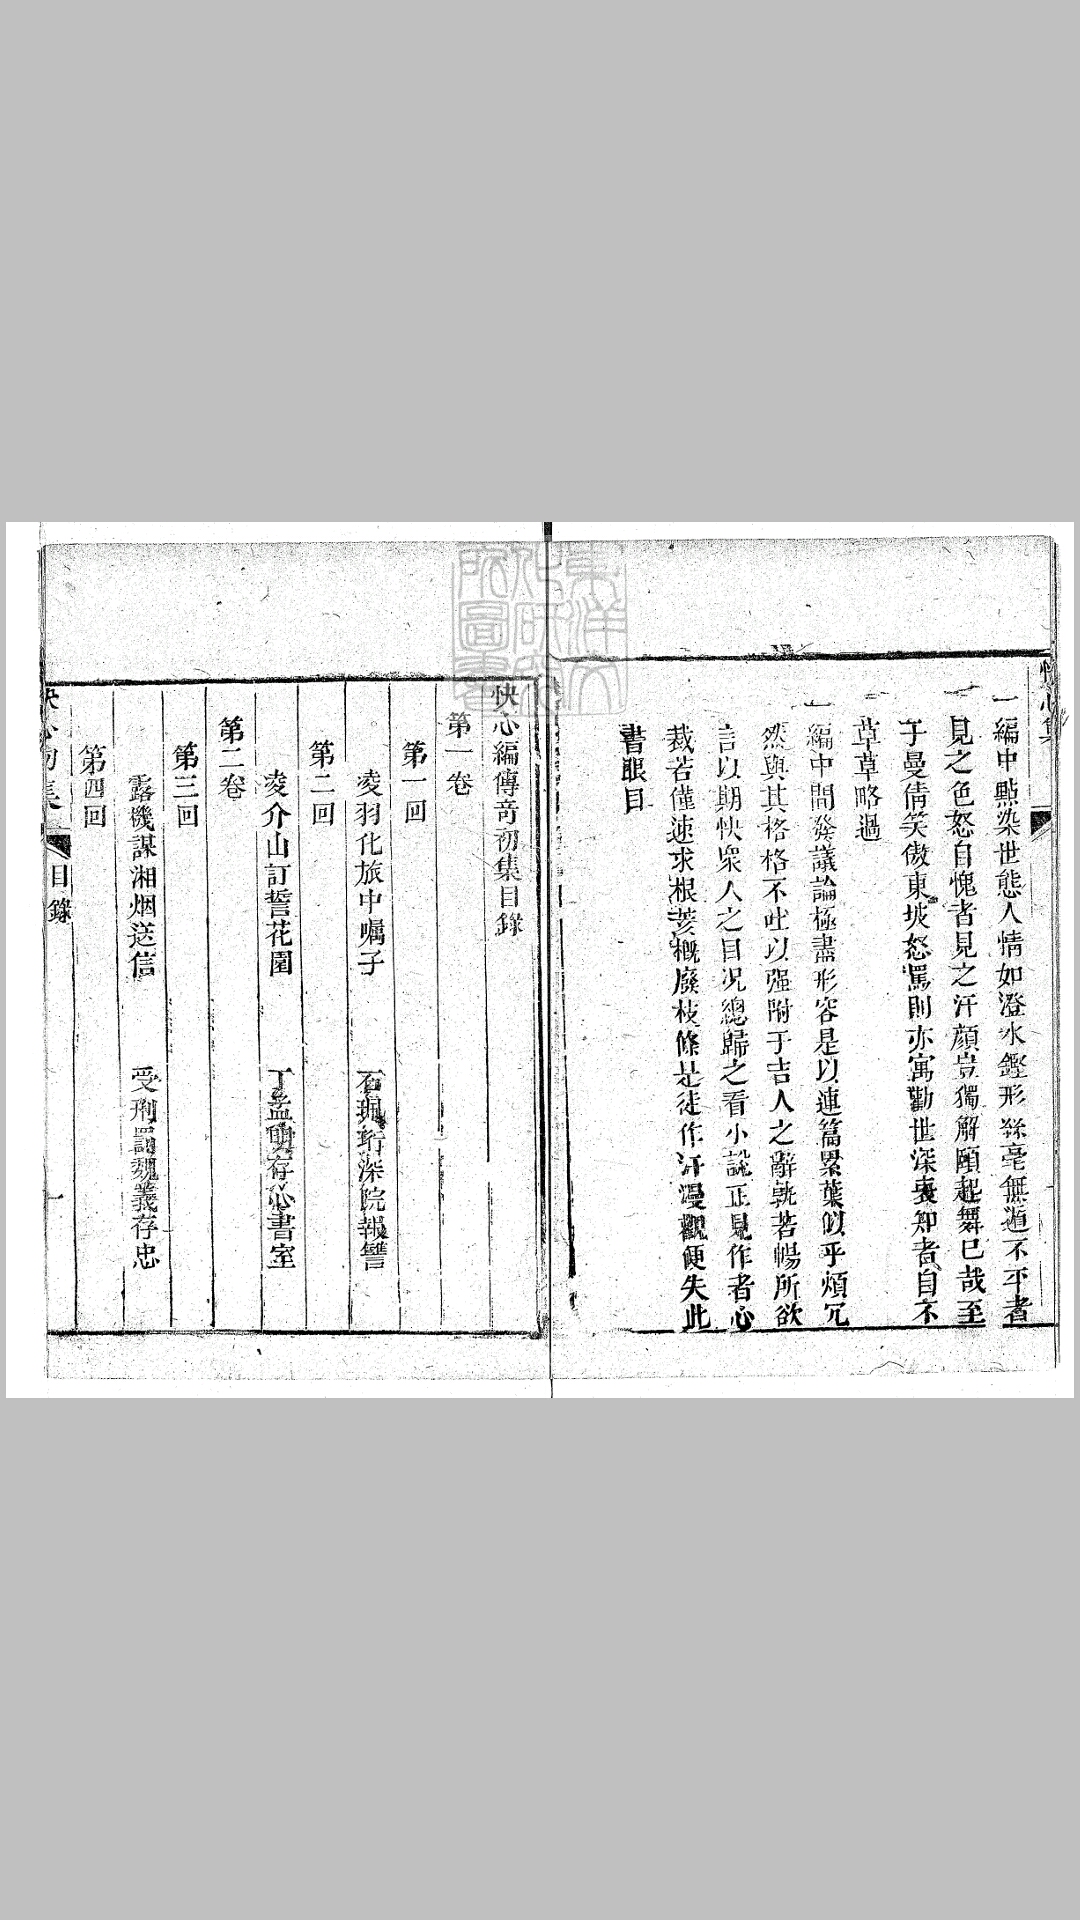 快心集
一編中點染世態人情如澄水鑑形絲毫無遁不平者
見之色怒自愧者見之汗顏豈獨解頤起舞已哉至
于曼倩笑傲東坡怒罵則亦寓勸世深衷知者自不
草草略過
一編中間發議論極盡形容是以連篇累葉似乎煩冗
然與其格格不吐以强附于吉人之辭孰若暢所欲
言以期快衆人之目况總歸之看小說正見作者心
裁若僅速求根荄概廢枝條是徒作汗漫觀便失此
書眼目
快心編傳奇初集目錄
第一卷
第一回
凌羽化旅中囑子 石珮珩深院報讐
第二回
凌介山訂誓花園 丁孟明存心書室
第二卷
第三回
露機謀湘烟送信 受刑罰魏義存忠
第四回
快心初集 目錄 一
東洋文化研究所圖書